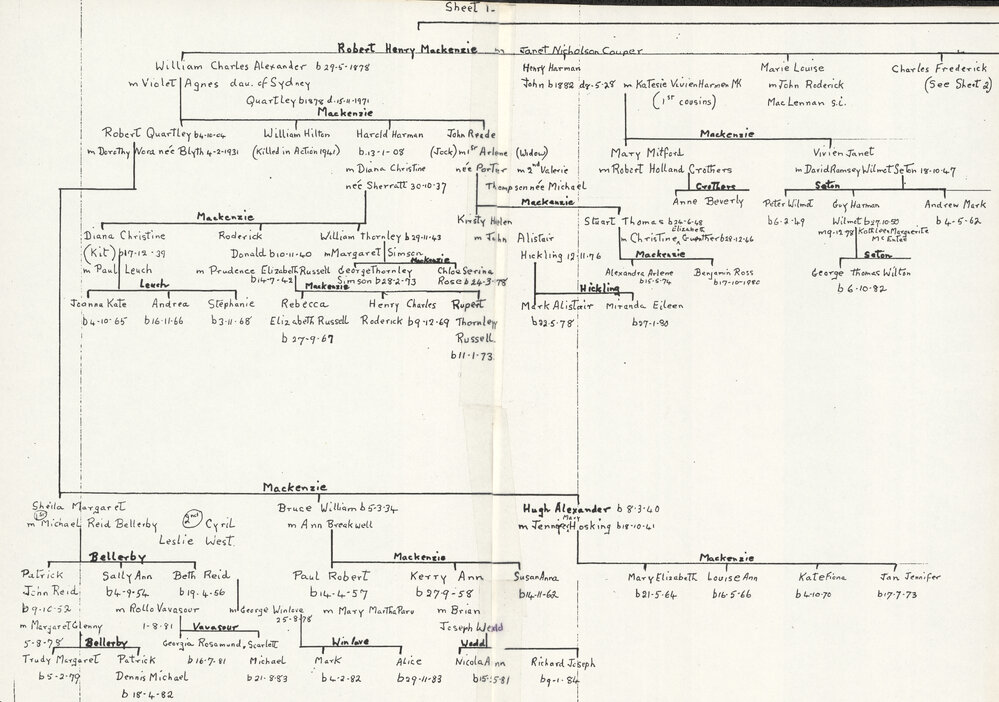 Sheet 1-
Robert Henry Mackenzie m Janet Nicholson Couper
William Charles Alexander b 29-5-1878
m Violet Agnes dau. of Sydney
Quartley b1878 d.15.11.1971
Henry Harman
John b1882 d
m Katesie Vivien Harmer MK
(1st cousins)
Marie Louise
m John Roderick
MacLennan s.i.
Charles Frederick
(See Sheet 2)
Mackenzie
Robert Quartley b4.10.04
m Dorothy Nora née Blyth 4-2-1931
William Hilton
(Killed in Action 1941)
Harold Harman
b.13-1-08
m Diana Christine
née Sherratt 30.10.37
John Reade
(Jock) m 1st Arlene (Widow)
née Porter
m 2nd Valerie
Thompson née Michael
Mackenzie
Mary Mitford
m Robert Holland Crothers
Vivien Janet
m David Ramsey Wilmot Seton 18.10.47
Crothers
Anne Beverly
Seton
Peter Wilmot
b6.2.49
Guy Harman
Wilmot b27.10.50
m9.12.78 Kathleen Marguerite
Andrew Mark
b 4-5-62
Seton
George Thomas Wilton
b 6.10.82
Mackenzie
Kirsty Helen
m John Alistair
Hickling 12.11.76
Stuart Thomas b24-6-48
Elizabeth
m Christine Guenther b28-12-46
Mackenzie
Alexandra Arlene
b15-5-74
Benjamin Ross
b17-10-1980
Hickling
Mark Alistair
b22.5.78
Miranda Eileen
b27-1-80
Mackenzie
Diana Christine
(Kit) b17-12-39
m Paul Leech
Roderick
Donald b10-11-40
m Prudence Elizabeth Russell
b14-7-42
William Thornley b29-11-43
m Margaret Simson
Mackenzie
George Thornley
Simson b28-2-73
Chloe Serina
Rose b24-3-78
Leech
Joanna Kate
b4-10-65
Andrea
b16-11-66
Stephanie
b3-11-68
Mackenzie
Rebecca
Elizabeth Russell
b 27-9-67
Henry Charles
Roderick b9-12-69
Rupert
Thornley
Russell
b11-1-73
Mackenzie
Sheila Margaret
1st
m Michael Reid Bellerby
2nd Cyril
Leslie West.
Bruce William b5-3-34
m Ann Breakwell
Hugh Alexander b 8-3-40
Mary
m Jennifer Hosking b18-10-41
Bellerby
Patrick
John Reid
b9-10-52
m Margaret Glenny
5-8-78
Sally Ann
b4-9-54
m Rollo Vavasour
1-8-81
Beth Reid
b19-4-56
m George Winlove
25-8-78
Mackenzie
Paul Robert
b14-4-57
m Mary Martha Paru
Kerry Ann
b279-58
m Brian
Joseph Wedd
Susan Anna
b14-11-62
Mackenzie
Mary Elizabeth
b21-5-64
Louise Ann
b16-5-66
Kate Fiona
b4-10-70
Jan Jennifer
b17-7-73
Bellerby
Trudy Margaret
b5-2-79
Patrick
Dennis Michael
b 18-4-82
Vavasour
Georgia Rosamund, Scarlett
b16-7-81
Michael
b21-8-83
Winlove
Mark
b4-2-82
Alice
b29-11-83
Wedd
Nicola Ann
b15-5-81
Richard Joseph
b9-1-84